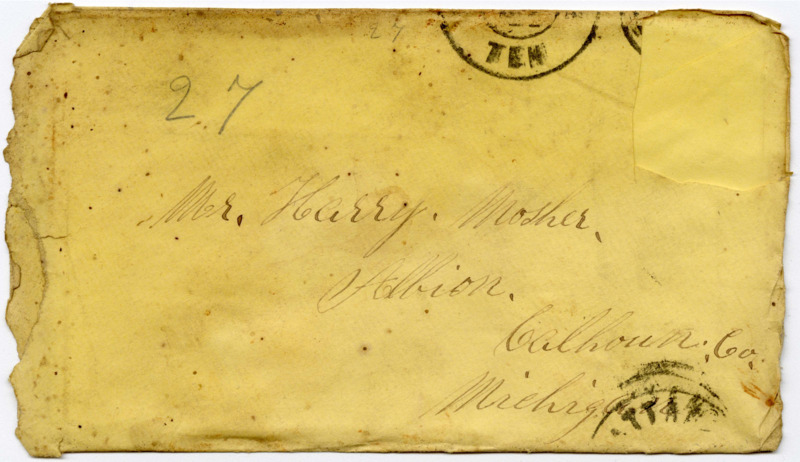 27
TEN
27
Mr. Harry. Mosher.
Albion.
Calhoun. Co.
Michigan